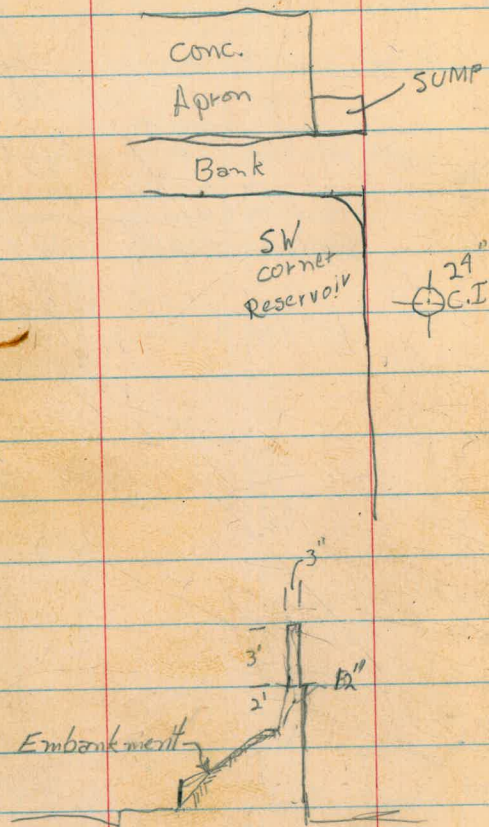 Conc.
Apron
SUMP
Bank
SW
corner
Reservoir
24"
C.I
3"
3'
2'
12"
Embankment